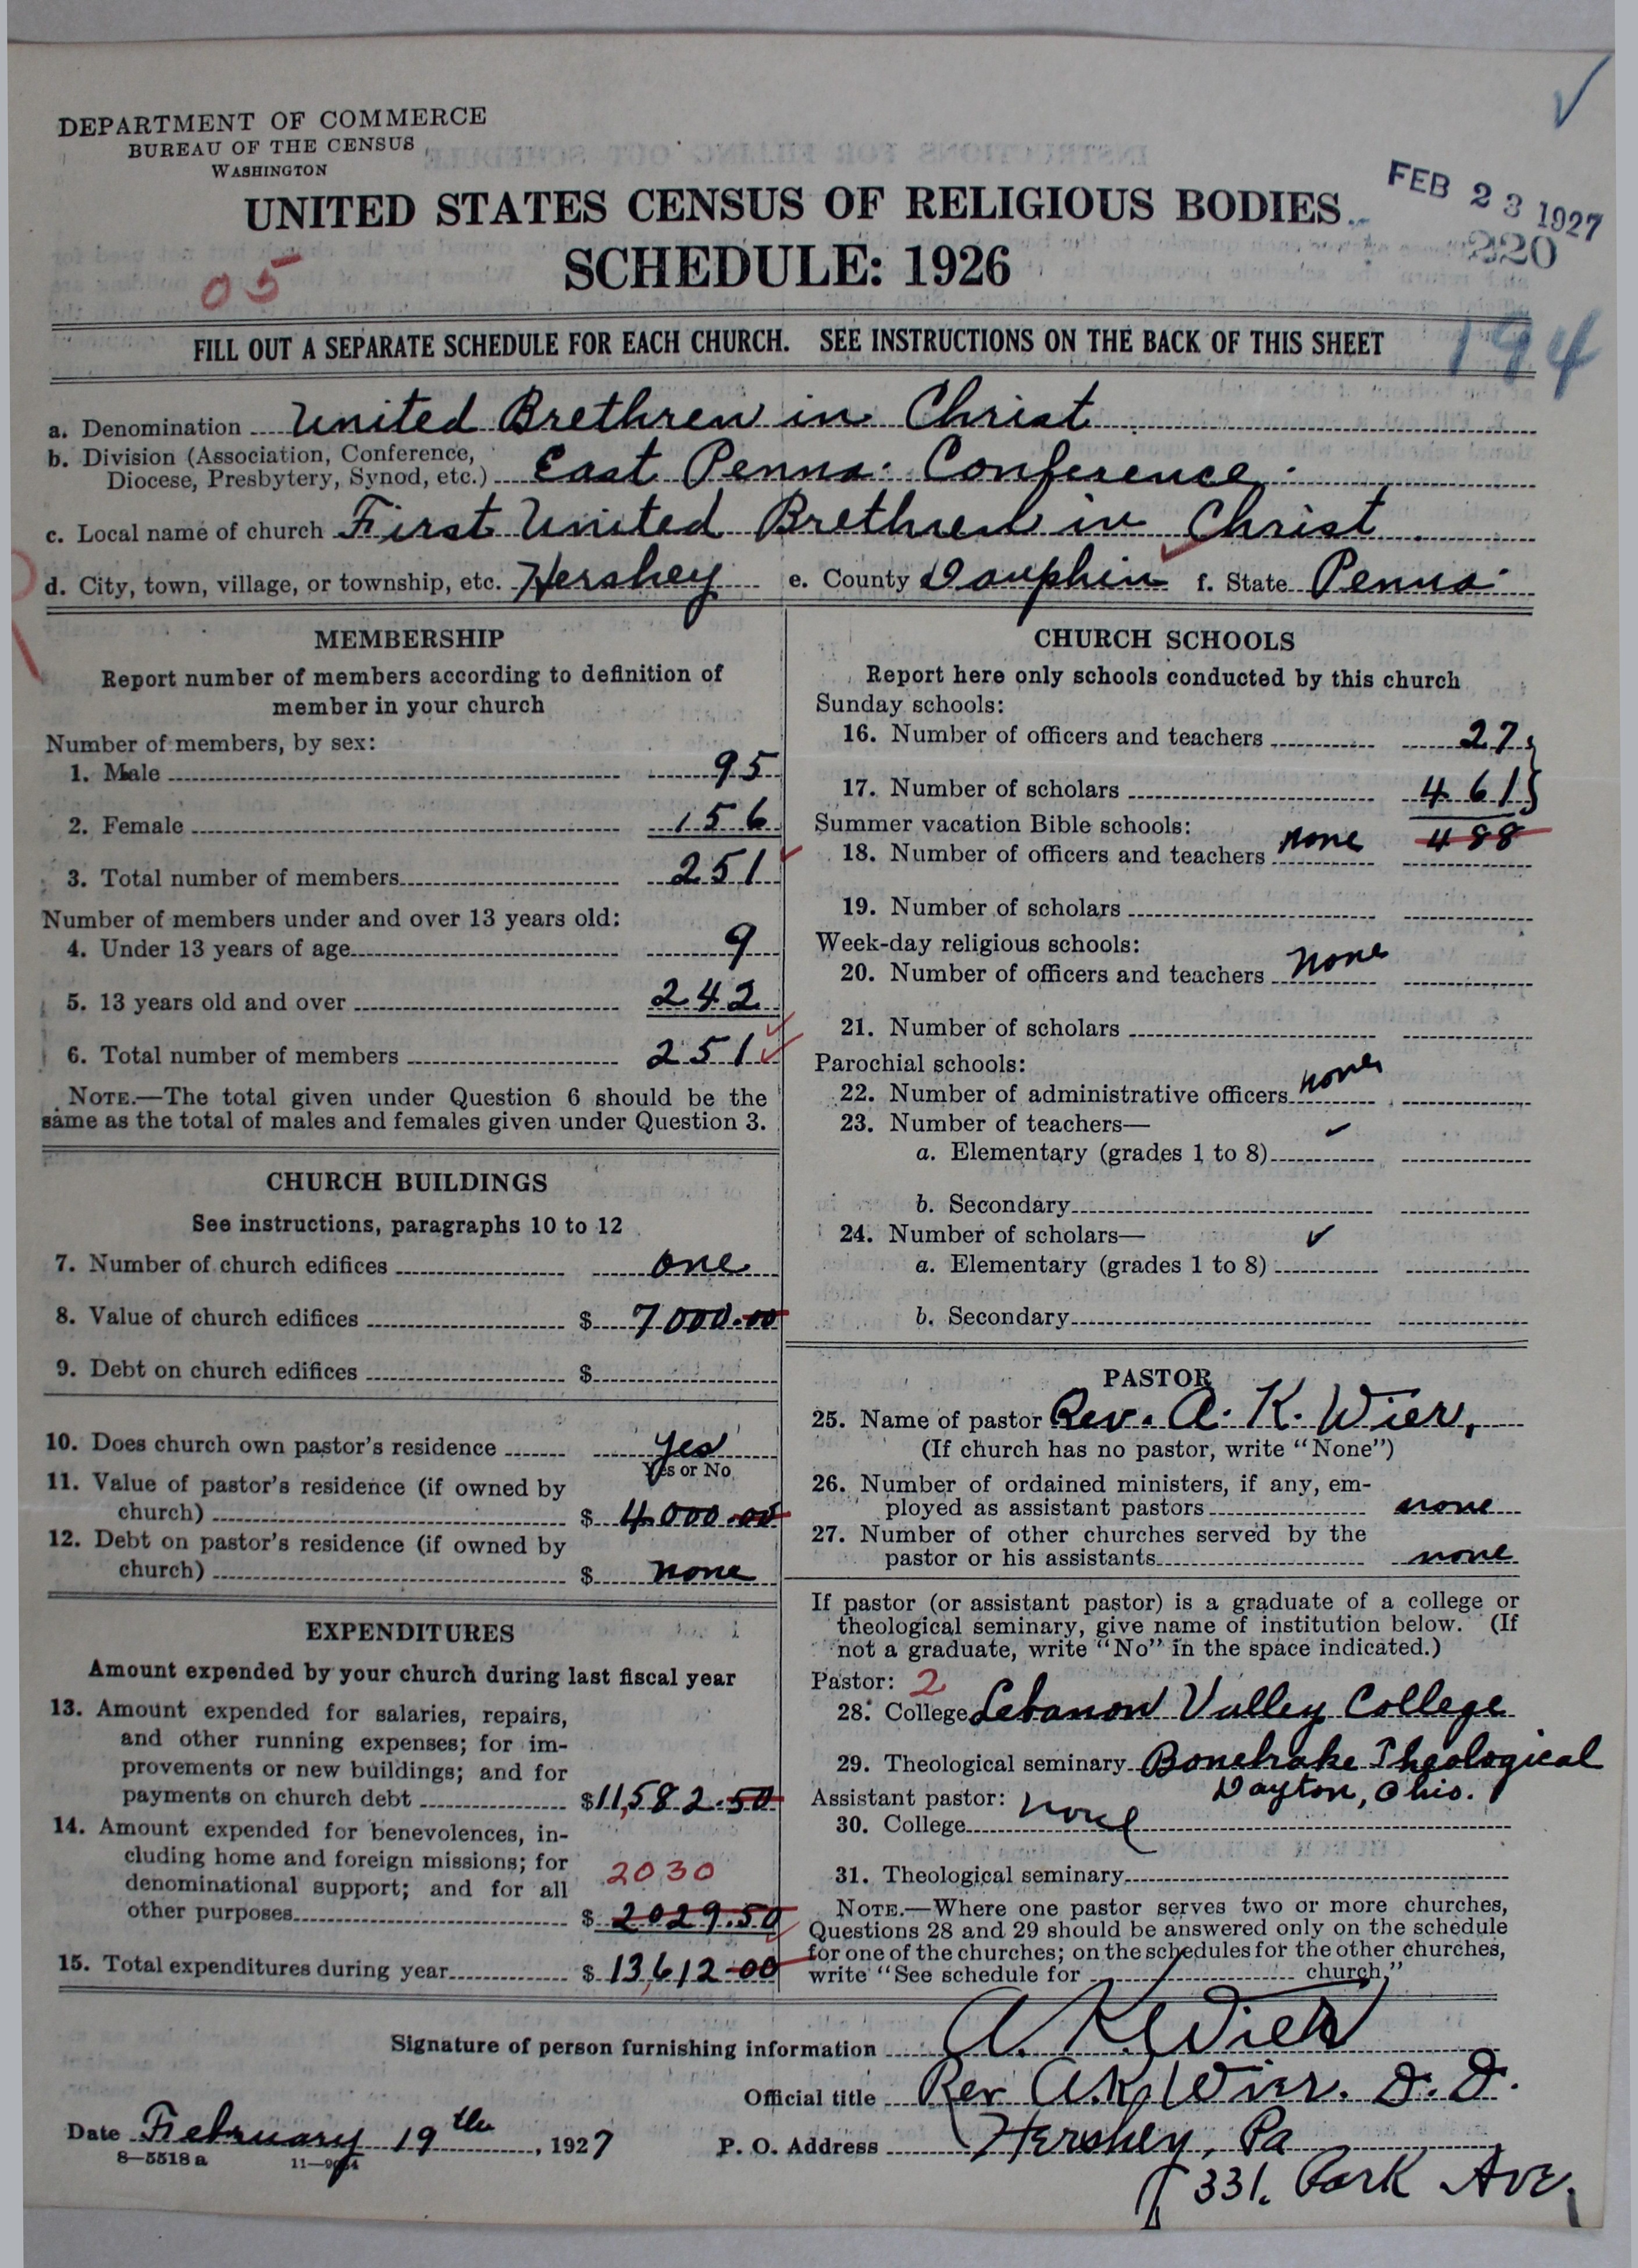 DEPARTMENT OF COMMERCE
BUREAU OF THE CENSUS
WASHINGTON
UNITED STATES CENSUS OF RELIGIOUS BODIES
SCHEDULE: 1926
FEB 23 1927
220
05
194
FILL OUT A SEPARATE SCHEDULE FOR EACH CHURCH. SEE INSTRUCTIONS ON THE BACK OF THIS SHEET
a. Denomination United Brethren in Christ
b. Division (Association, Conference, Diocese, Presbytery, Synod, etc.) East Penna. Conference.
c. Local name of church First United Brethren in Christ
d. City, town, village, or township, etc. Hershey e. County Dauphin f. State Penna.
MEMBERSHIP
Report number of members according to definition of
member in your church
Number of members, by sex:
1. Male 95
2. Female 156
3. Total number of members 251
Number of members under and over 13 years old:
4. Under 13 years of age 9
5. 13 years old and over 242
6. Total number of members 251
NOTE.—The total given under Question 6 should be the
same as the total of males and females given under Question 3.
CHURCH BUILDINGS
See instructions, paragraphs 10 to 12
7. Number of church edifices one
8. Value of church edifices $ 7000.00
9. Debt on church edifices $
10. Does church own pastor's residence yes
Yes or No
11. Value of pastor's residence (if owned by
church) $ 4000.00
12. Debt on pastor's residence (if owned by
church) $ none
EXPENDITURES
Amount expended by your church during last fiscal year
13. Amount expended for salaries, repairs,
and other running expenses; for im-
provements or new buildings; and for
payments on church debt $11,582.50
14. Amount expended for benevolences, in-
cluding home and foreign missions; for
denominational support; and for all
2030
other purposes $ 2029.50
15. Total expenditures during year $ 13,612.00
CHURCH SCHOOLS
Report here only schools conducted by this church
Sunday schools:
16. Number of officers and teachers 27
17. Number of scholars 461
488
Summer vacation Bible schools:
18. Number of officers and teachers none
19. Number of scholars
Week-day religious schools:
20. Number of officers and teachers none
21. Number of scholars
Parochial schools:
22. Number of administrative officers none
23. Number of teachers—
a. Elementary (grades 1 to 8)
b. Secondary
24. Number of scholars—
a. Elementary (grades 1 to 8)
b. Secondary
PASTOR
25. Name of pastor Rev. A. K. Wier,
(If church has no pastor, write "None")
26. Number of ordained ministers, if any, em-
ployed as assistant pastors none
27. Number of other churches served by the
pastor or his assistants none
If pastor (or assistant pastor) is a graduate of a college or
theological seminary, give name of institution below. (If
not a graduate, write "No" in the space indicated.)
Pastor: 2
28. College Lebanon Valley College
29. Theological seminary Bonebrake Theological
Dayton, Ohio.
Assistant pastor:
30. College none
31. Theological seminary
NOTE.—Where one pastor serves two or more churches,
Questions 28 and 29 should be answered only on the schedule
for one of the churches; on the schedules for the other churches,
write "See schedule for church."
Signature of person furnishing information A. K. Wier
Official title Rev A. K. Wier. D. D.
Date February 19th, 1927 P. O. Address Hershey, Pa
331. Park Ave.
8—5518 a